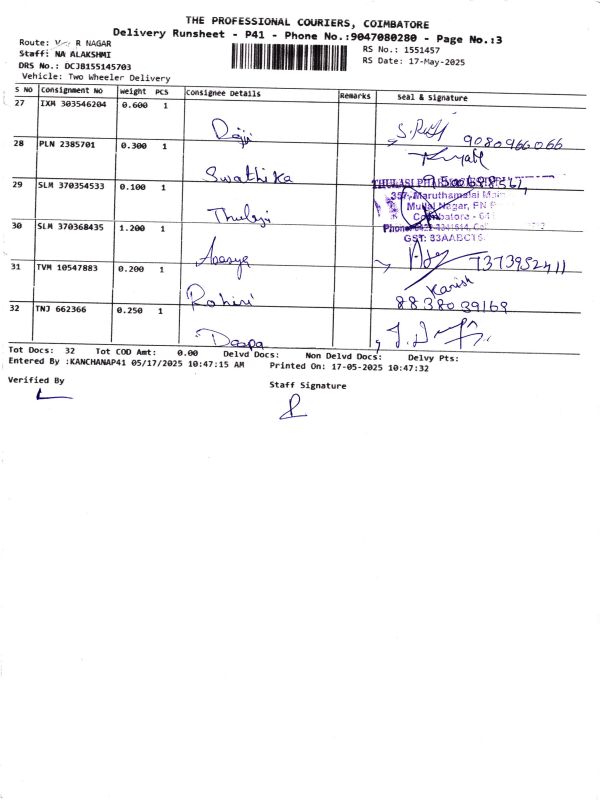 THE PROFESSIONAL COURIERS, COIMBATORE
Delivery Runsheet - P41 - Phone No.:9047080280 - Page No.:3
Route: R NAGAR
Staff: NA ALAKSHMI
DRS No.: DCJ8155145703
Vehicle: Two Wheeler Delivery
RS No.: 1551457
RS Date: 17-May-2025
S NO Consignment No Weight PCS Consignee Details Remarks Seal & Signature
27 IXM 303546204 0.600 1
9080966066
28 PLN 2385701 0.300 1
Swathika
29 SLM 370354533 0.100 1
357, Maruthamalai Main
Nagar, PN P
Coimbatore - 641
Thulasi
30 SLM 370368435 1.200 1
Phone
GST: 33AABCT
7373952411
31 TVM 10547883 0.200 1
Rohini
Kanish
8838039169
32 TNJ 662366 0.250 1
Tot Docs: 32 Tot COD Amt: 0.00 Delvd Docs: Non Delvd Docs: Delvy Pts:
Entered By :KANCHANAP41 05/17/2025 10:47:15 AM Printed On: 17-05-2025 10:47:32
Verified By
Staff Signature